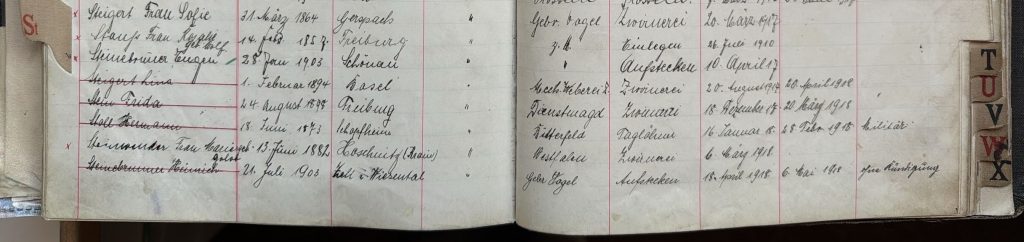 St
Steigert Frau Sofie 31. März 1864 " Gebr. Vogel Zwirnerei 20. März 1917
x Frau 14. Feb. 1857. Freiburg " z. H. Einlegen 26. Juli 1910
x Steinebrunner Eugen 28 Jan 1903 Schönau " " Aufstecken 10. April 17
Steigert Lina 1. Februar 1894 Basel " Mech. Weberei Z. Zwirnerei 20. August 1917 20. April 1918
Stein Frida 24. August 1898 Freiburg " Dienstmagd Zwirnerei 18. Dezember 17 20. März 1918
Stoll Hermann 18. Juni 1873 Schopfheim " Bitterfeld Taglöhner 16 Januar 18. 28 Febr. 1918 Militär
x Frau 13. Juni 1882 " Westfalen Zwirnerei 6. März 1918.
Steinebrunner Heinrich 21. Juli 1903 Zell i. Wiesental " Gebr Vogel Aufstecken 18. April 1918 6. Mai 1918 ohne Kündigung
T
U
V
W
X